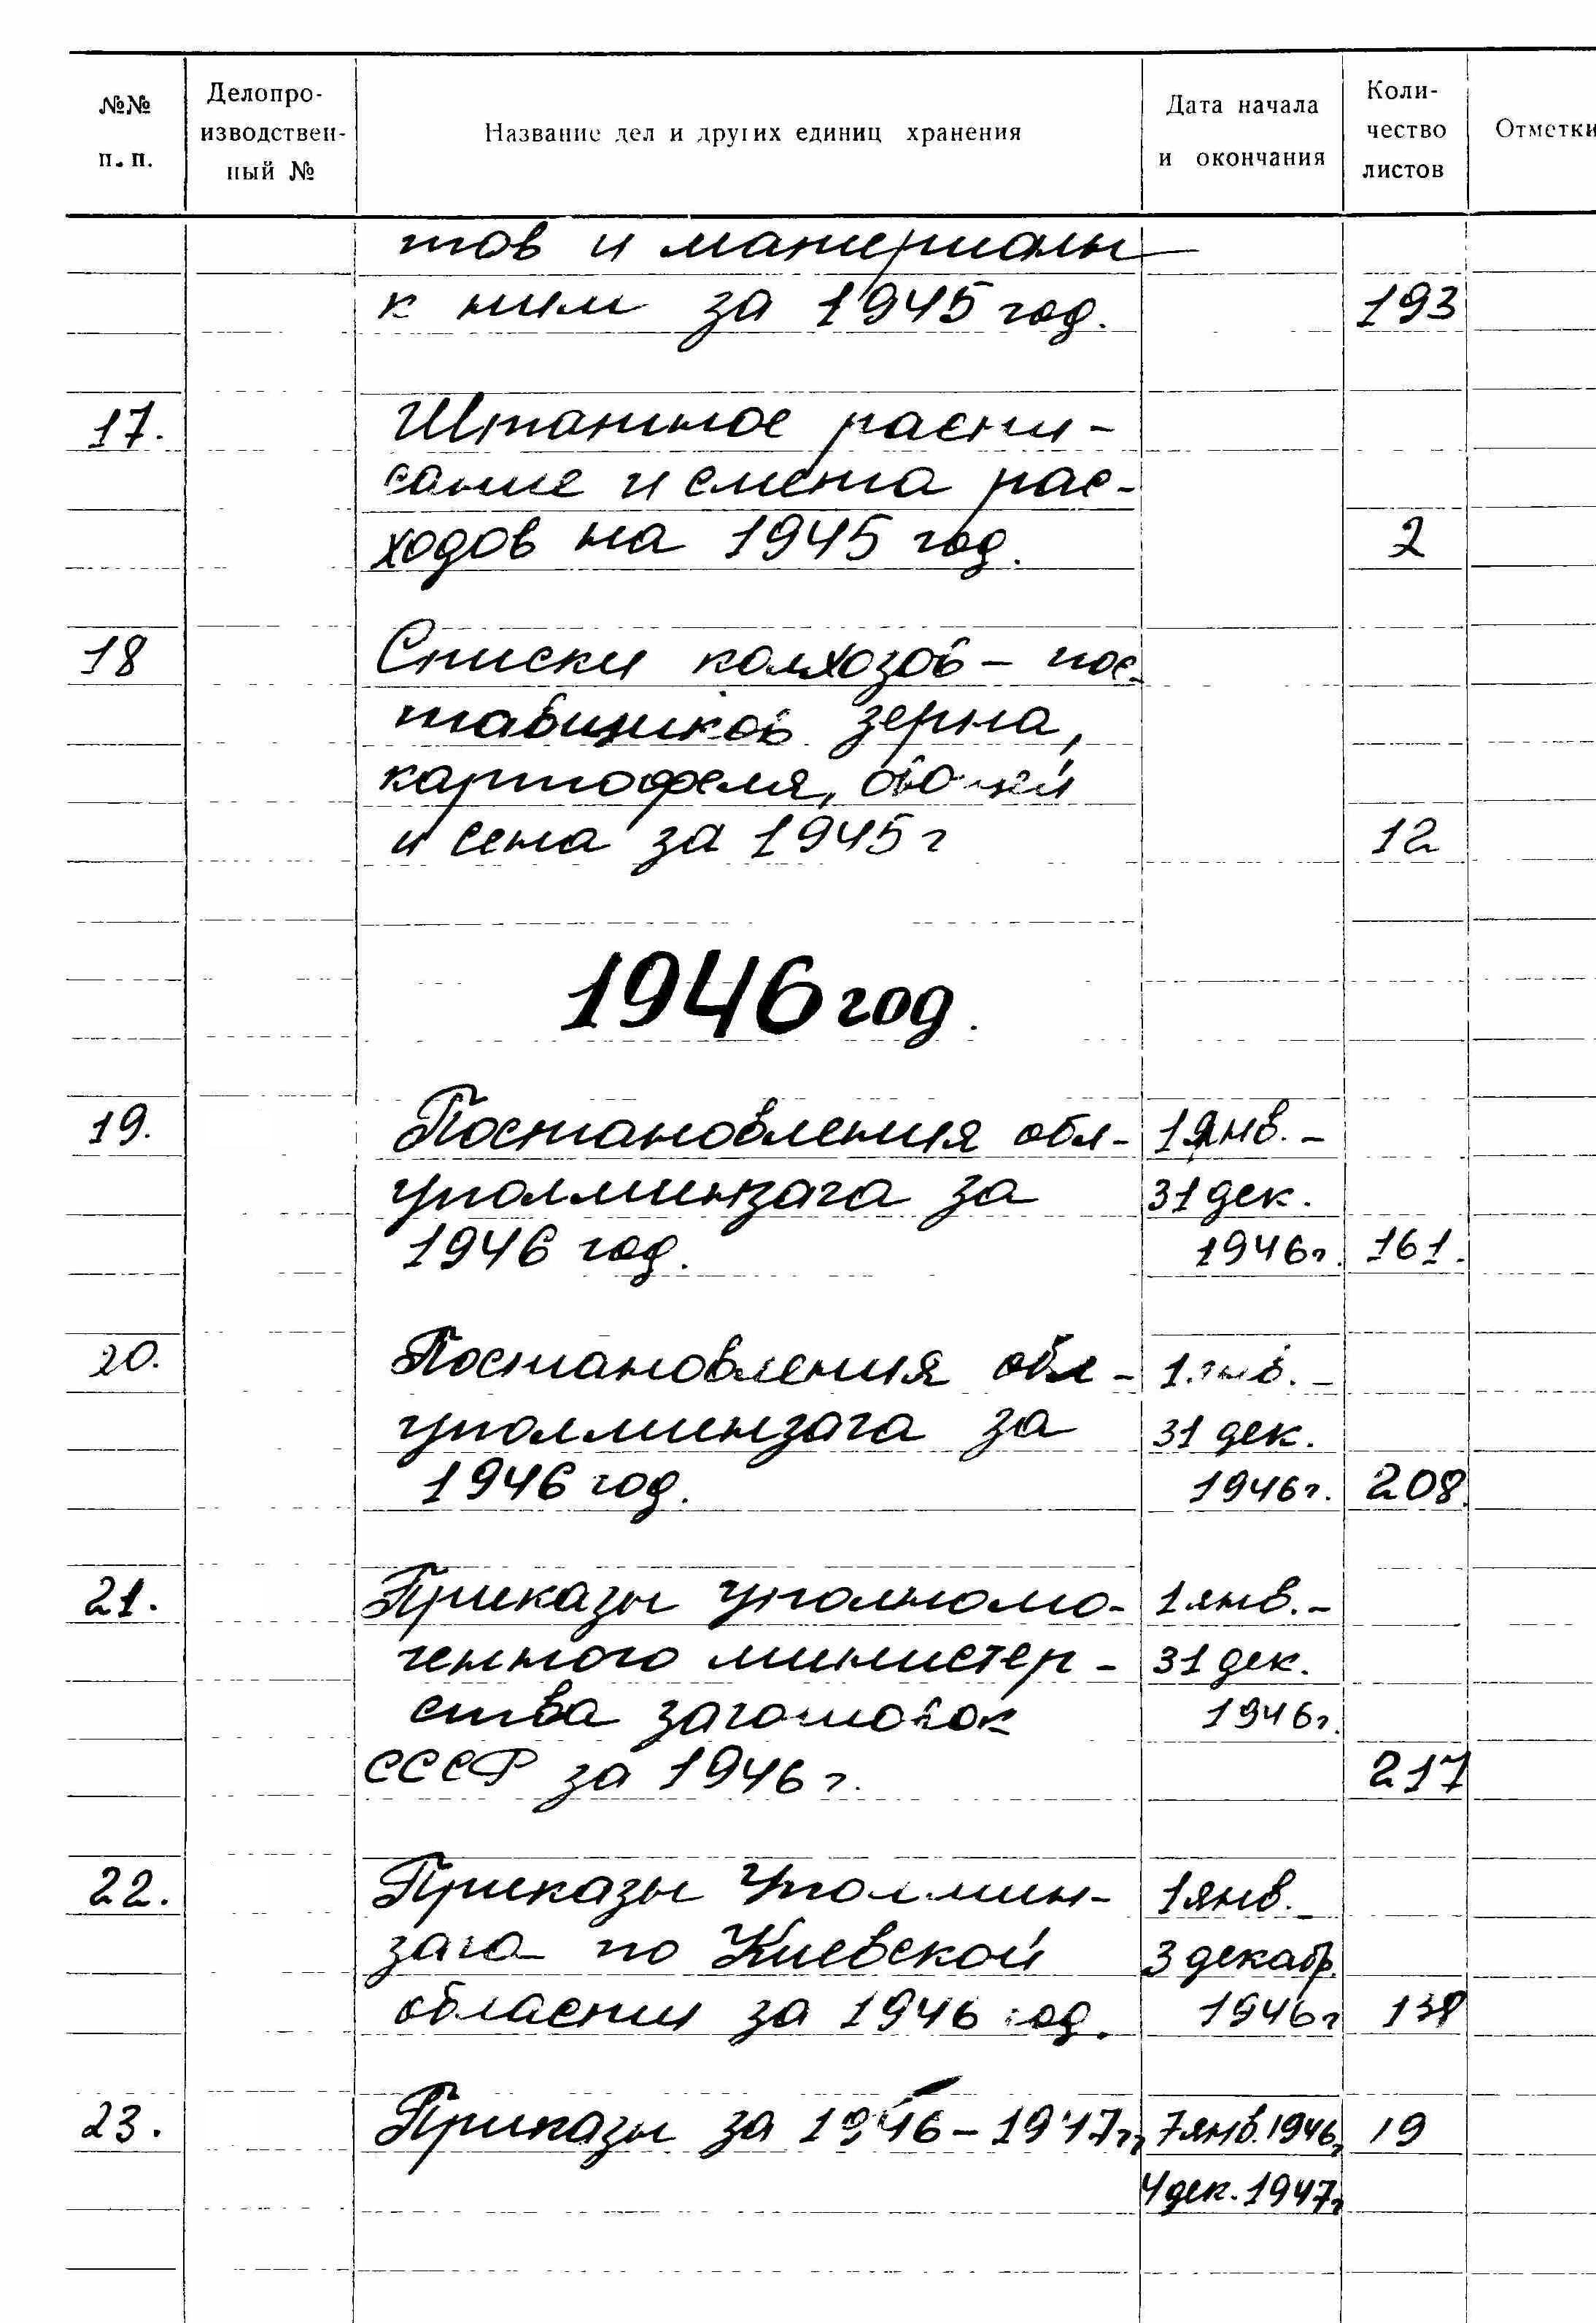 №№ п. п.
Делопро-
изводствен-
ный №
Название дел и других единиц хранения
Дата начала
и окончания
Коли-
чество
листов
Отметки
тов и материалы
к ним за 1945 год. 193
17. Штатное распи-
сание и смета рас-
ходов на 1945 год. 2
18 Списки колхозов – пос-
тавщиков зерна,
картофеля, овощей
и сена за 1945 г 12
1946 год.
19. Постановления обл- 1 янв. –
уполминзага за 31 дек.
1946 год. 1946 г. 161.
20. Постановления обл- 1 янв. –
уполминзага за 31 дек.
1946 год. 1946 г. 208.
21. Приказы уполномо- 1 янв. –
ченного министер- 31 дек.
ства заготовок 1946 г.
СССР за 1946 г. 217
22. Приказы Уполмин- 1 янв. –
зага по Киевской 3 декабр.
области за 1946 год. 1946 г 138
23. Приказы за 1946 – 1947 гг 7 янв. 1946 г 19
4 дек. 1947 г